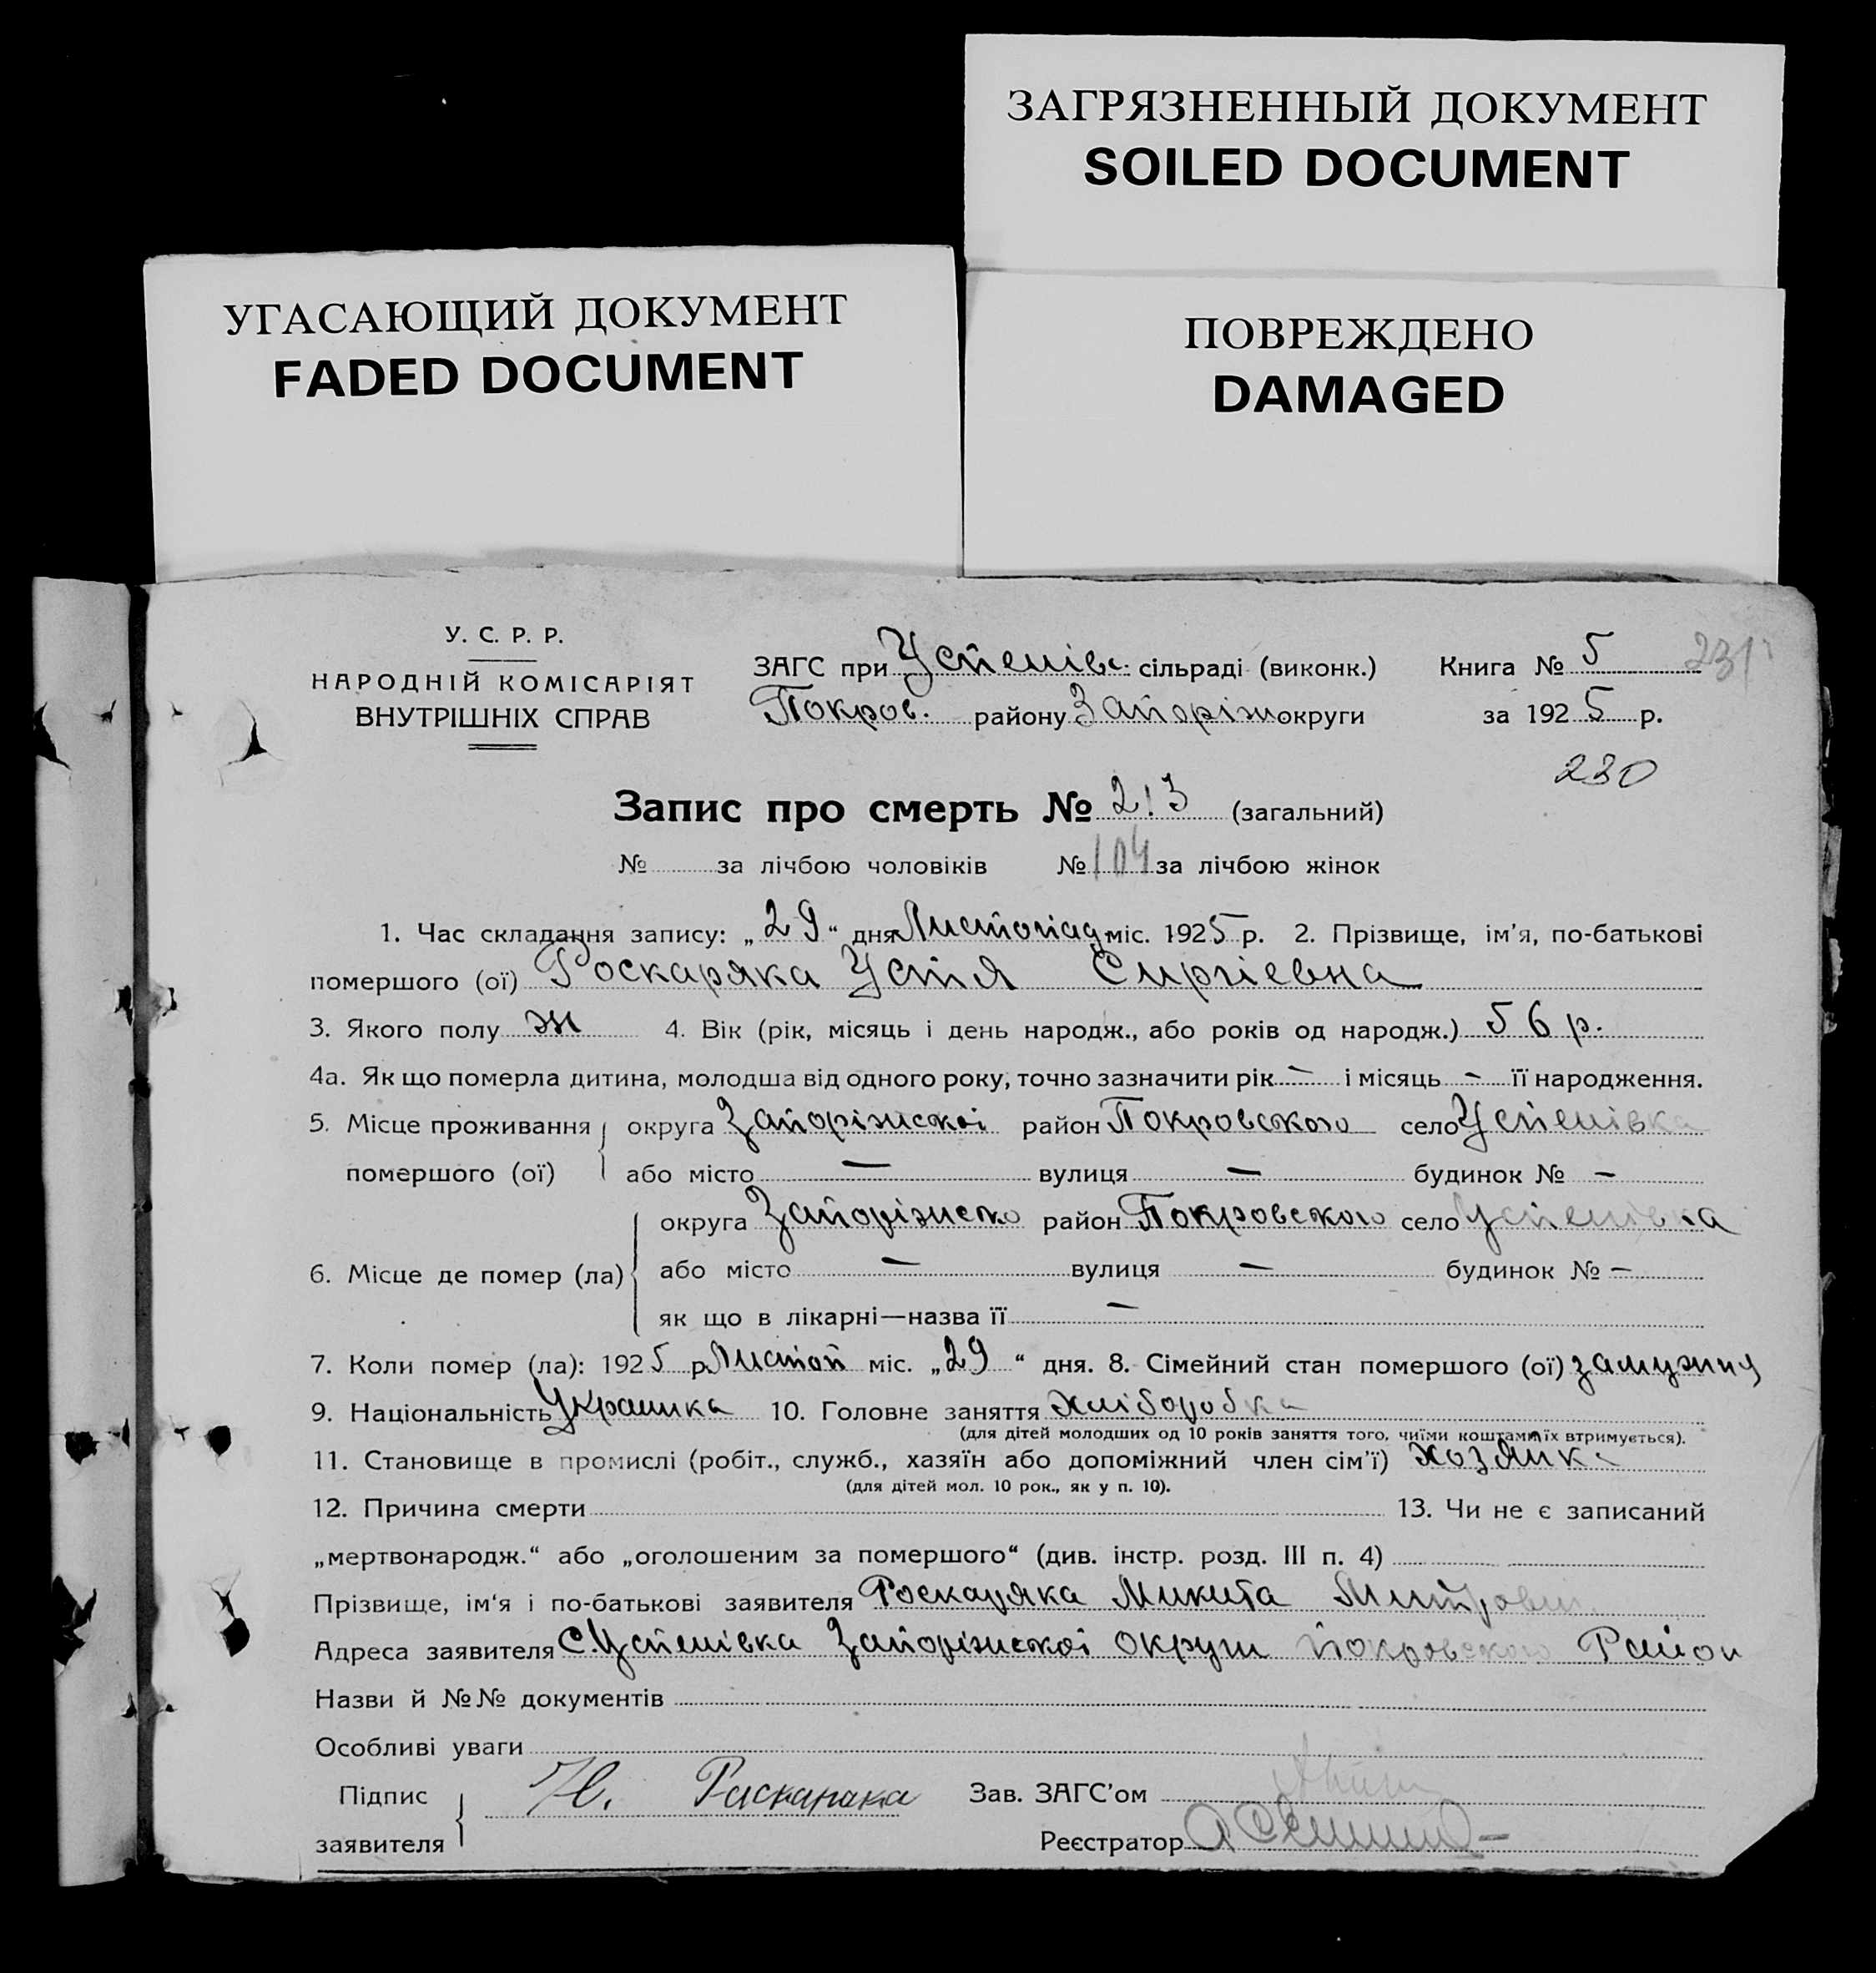 ЗАГРЯЗНЕННЫЙ ДОКУМЕНТ
SOILED DOCUMENT
УГАСАЮЩИЙ ДОКУМЕНТ
FADED DOCUMENT
ПОВРЕЖДЕНО
DAMAGED
У. С. Р. Р.
НАРОДНІЙ КОМІСАРІЯТ
ВНУТРІШНІХ СПРАВ
ЗАГС при Успенівс. сільраді (виконк.)
Покров. району Запоріж округи
Книга № 5 231
за 1925 р.
230
Запис про смерть № 213 (загальний)
№ за лічбою чоловіків № 104 за лічбою жінок
1. Час складання запису: „29“ дня Листопад міс. 1925 р. 2. Прізвище, ім'я, по-батькові
помершого (ої) Роскаряка Устя Сиргіевна
3. Якого полу ж 4. Вік (рік, місяць і день народж., або років од народж.) 56 р.
4а. Як що померла дитина, молодша від одного року, точно зазначити рік — і місяць — її народження.
5. Місце проживання округа Запоріжської район Покровського село Успенівка
помершого (ої) або місто — вулиця — будинок № —
округа Запоріжсько район Покровського село Успенівка
6. Місце де помер (ла) або місто — вулиця — будинок № —
як що в лікарні—назва її —
7. Коли помер (ла): 1925 р. Листоп міс. „29“ дня. 8. Сімейний стан помершого (ої) замужня
9. Національність Украинка 10. Головне заняття хліборобка
(для дітей молодших од 10 років заняття того, чиїми коштами їх втримується).
11. Становище в промислі (робіт., служб., хазяїн або допоміжний член сім'ї) хозяйка
(для дітей мол. 10 рок., як у п. 10).
12. Причина смерти 13. Чи не є записаний
„мертвонародж.“ або „оголошеним за помершого“ (див. інстр. розд. III п. 4)
Прізвище, ім'я і по-батькові заявителя Роскаряка Микита
Адреса заявителя С. Успенівка Запоріжської округи Покровського Район
Назви й №№ документів
Особливі уваги
Підпис
заявителя Н. Раскаряка
Зав. ЗАГС'ом
Реєстратор